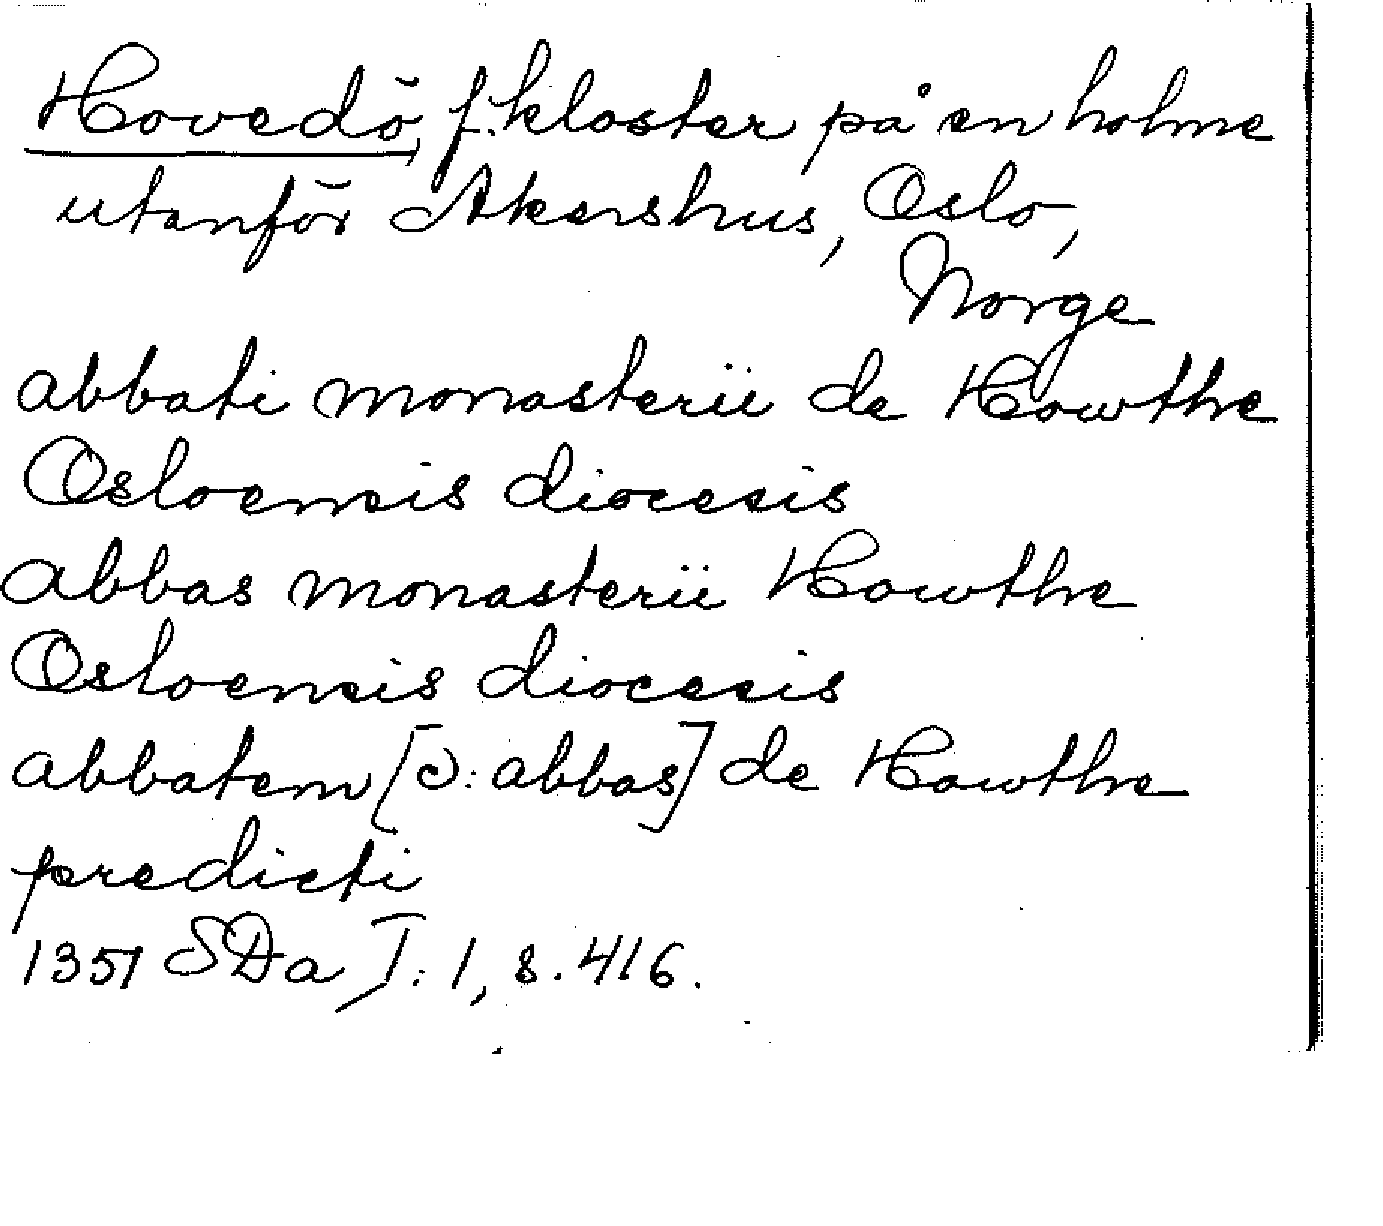 Hovedö, f. kloster på en holme
utanför Akershus, Oslo,
Norge
abbati monasterii de Howthe
Osloensis diocesis
abbas monasterii Howthe
Osloensis diocesis
abbatem [ɔ: abbas] de Howthe
predicti
1351 SDa I: 1, s. 416.